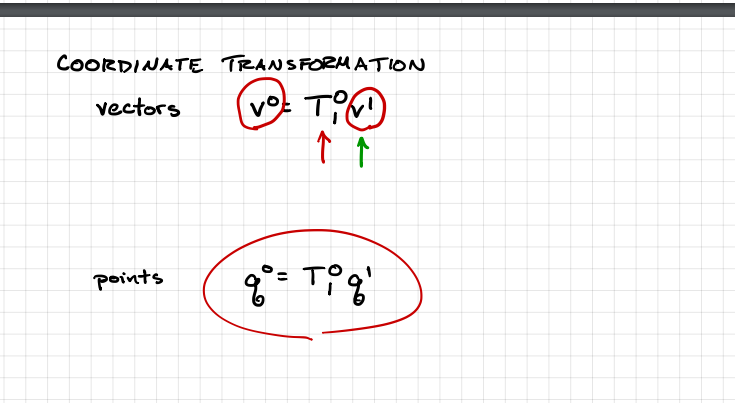 COORDINATE TRANSFORMATION
vectors v⁰ = T₁⁰ v¹
points q⁰ = T₁⁰ q¹